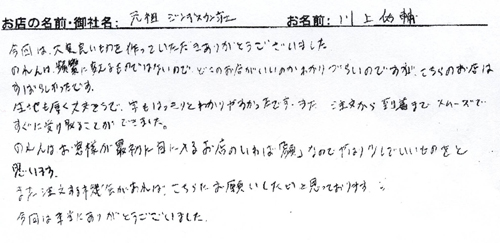 お店の名前・御社名: 元祖 ジンギスカン荘 お名前: 川上佑輔
今回は、大変良いものを作っていただきありがとうございました
のれんは、頻繁に変えるものではないので、どこのお店がいいのかわかりづらいのですが、こちらのお店は
すばらしかったです。
生地も厚く丈夫そうで、字もはっきりとわかりやすかったです。また 注文から到着まで スムーズで
すぐに受け取ることができました。
のれんはお客様が最初に目に入るお店のいわば「顔」なのでやはり少しでもいいものをと
思います。
また注文する機会があれば、こちらにお願いしたいと思っております
今回は本当にありがとうございました。